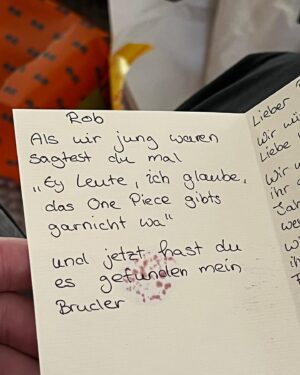 Rob
Als wir jung waren
sagtest du mal
„Ey Leute, ich glaube,
das One Piece gibts
garnicht wa"
und jetzt hast du
es gefunden mein
Bruder
Lieber
Wir
Liebe
Wir
ihr